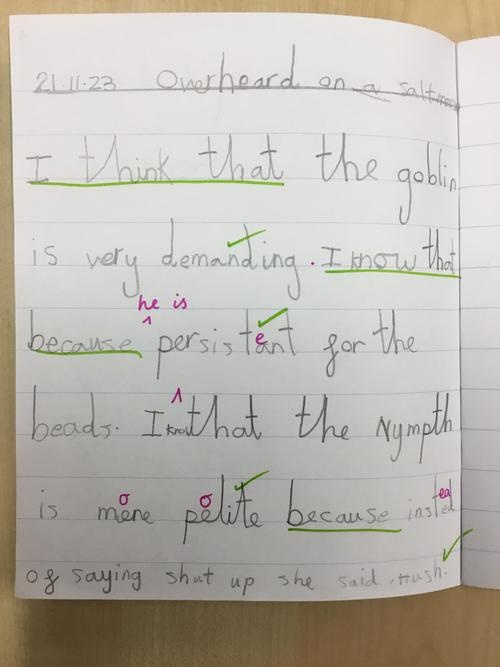 21.11.23 Overheard on a
I think that the goblin
is very demanding. I know that
he is
because persistant for the
e
beads. I know that the Nympth
is mene pelite because insted
o o ea
of saying shut up she said Hush.